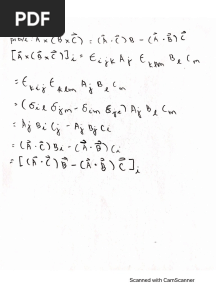 PDF
prove: A × (B × C) = (A · C) B − (A · B) C
[A × (B × C)]i = εijk Aj εklm Bl Cm
= εkij εklm Aj Bl Cm
= (δil δjm − δim δjl) Aj Bl Cm
= Aj Bi Cj − Aj Bj Ci
= (A · C) Bi − (A · B) Ci
= [(A · C) B − (A · B) C]i
Scanned with CamScanner